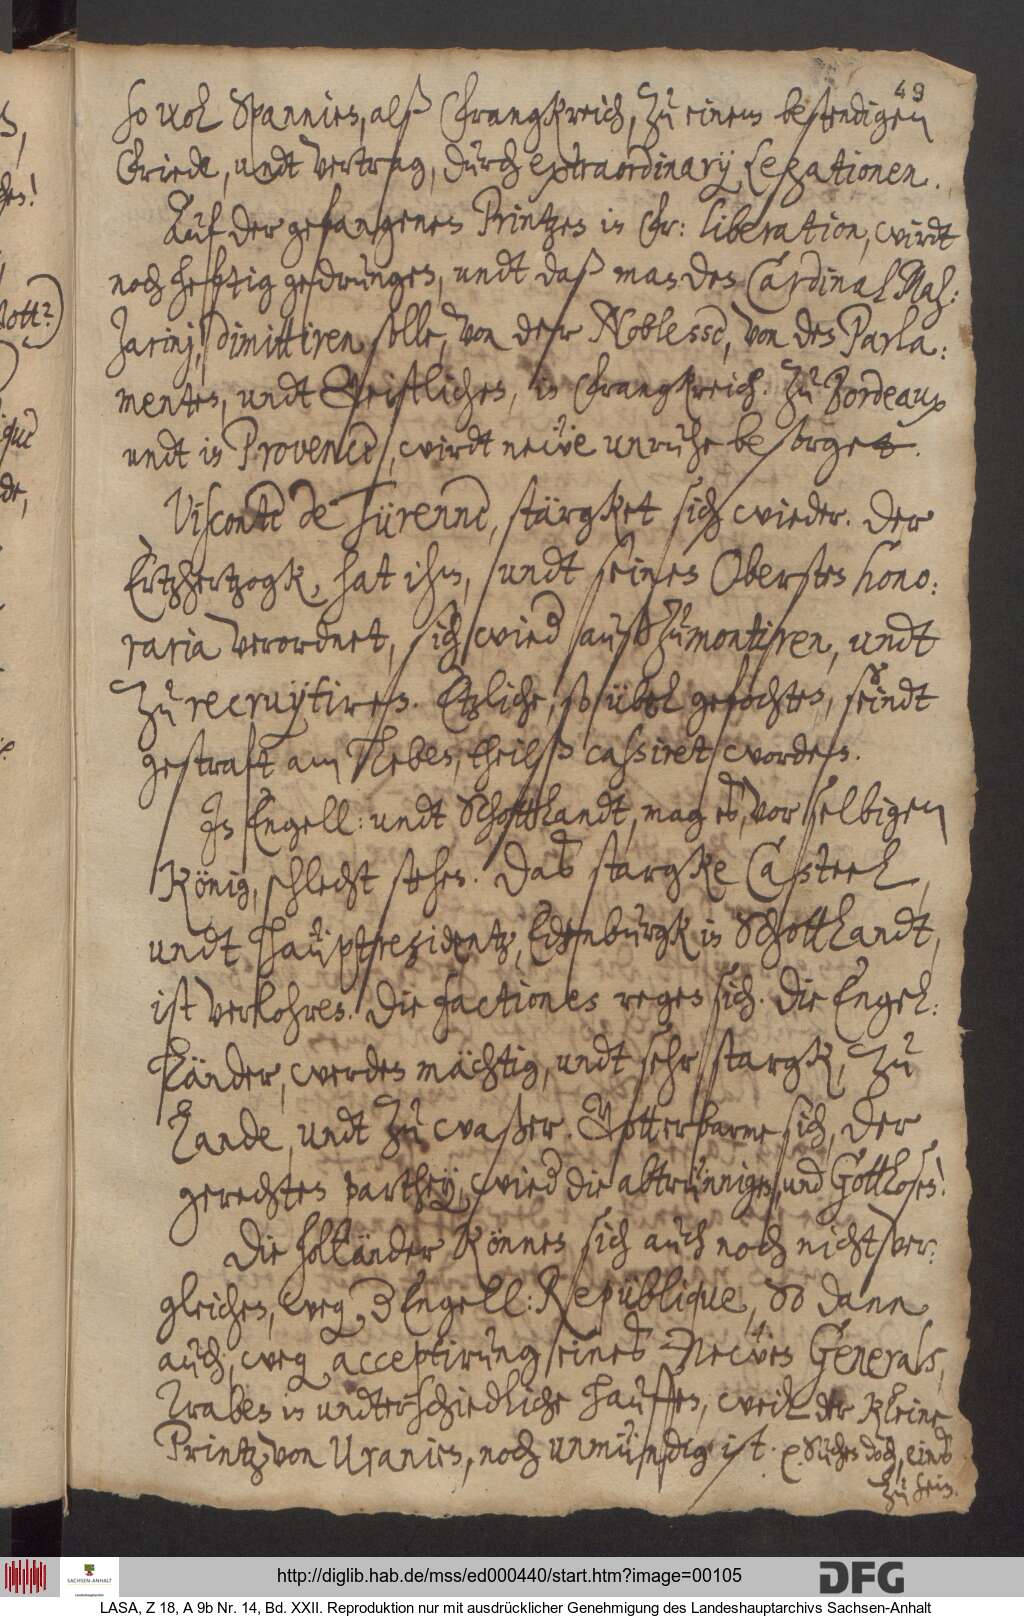 49
so wol Spannien, alß Franckreich, zu einem bestendigen
Friede, undt vertrag, durch extraordinarÿ Legationen.
Auf der gefangenen Printzen in Fr: liberation, wirdt
noch heftig gedrungen, undt daß man den Cardinal Maz:
zarinj, dimittiren solle, von der Noblesse, von des Parla:
mentes, undt Geistlichen, in Franckreich. Zu Bordeaux
undt in Provence, wirdt neẅe unruhe besorget.
Visconte de Türenne, stärgket sich wieder. Der
Ertzhertzogk, hat ihm, undt seinen Obersten hono:
raria verordnet, sich wied auß zu montiren, undt
zu recruÿtiren. Etzliche, so übel gefochten, seindt
gestraft am leben, theilß cassiret worden.
In Engell: undt Schottlandt, mag es, vor selbigen
König, schlecht stehen. Das stargke Casteel,
undt hauptresidentz, Edenburgk in Schottlandt,
ist verlohren. Die factiones regen sich. Die Engel:
länder, werden mächtig, undt sehr stargk, zu
Lande, undt zu waßer. Gott erbarme sich, der
gerechten parthey, wied die abtrünnigen, und Gottlosen!
Die Holländer können sich auch noch nicht ver:
gleichen, weg d Engell: Republique, So dann
auch, weg acceptirung eines Neẅen Generals,
traben in undterschiedliche hauffen, weil der kleine
Printz von Uranien, noch unmündig ist. Suchen doch, eins
zu sein.
ott?
que
de,
http://diglib.hab.de/mss/ed000440/start.htm?image=00105
SACHSEN-ANHALT
Landeshauptarchiv
DFG
LASA, Z 18, A 9b Nr. 14, Bd. XXII. Reproduktion nur mit ausdrücklicher Genehmigung des Landeshauptarchivs Sachsen-Anhalt